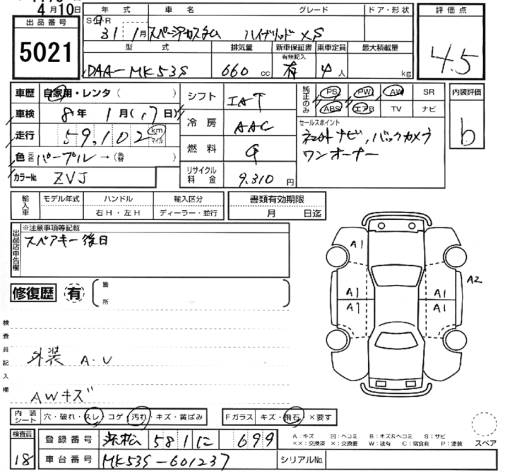 4月10日
出品番号
5021
年式 車名 グレード ドア・形状
31 1月 スペーシアカスタム ハイブリッド XS
型式 排気量 新車保証書 乗車定員 最大積載量
有効記入
DAA-MK53S 660 cc 有 4人 kg
評価点
4.5
内装評価
b
車歴 自家用・レンタ( )
車検 8年 1月(17)日
走行 59,102 km マイル
色 パープル→(替 )
カラーNo ZVJ
シフト IAT
冷房 AAC
燃料 G
リサイクル料金 9,310円
純正のみ PS PW AW SR
ABS エアB TV ナビ
セールスポイント
ネオトナビ,バックカメラ
ワンオーナー
輸入車 モデル年式 ハンドル 輸入区分 書類有効期限
右H・左H ディーラー・並行 月 日迄
出品店申告欄
※注意事項等記載
スペアキー後日
修復歴 有 ( 箇所 )
検査員記入欄
外装 A.U
AWキズ
A1 A1 A2
A1 A1
内装シート 穴・破れ・スレ・コゲ・汚れ・キズ・黄ばみ Fガラス キズ・飛石・×要す
A:キズ 凹:ヘコミ B:キズ&ヘコミ S:サビ
××:交換済 ×:要交換 W:波有 C:腐食有 P:塗装
スペア
検査員
18
登録番号 浜松 581 に 699
車台番号 MK53S-601237 シリアルNo.